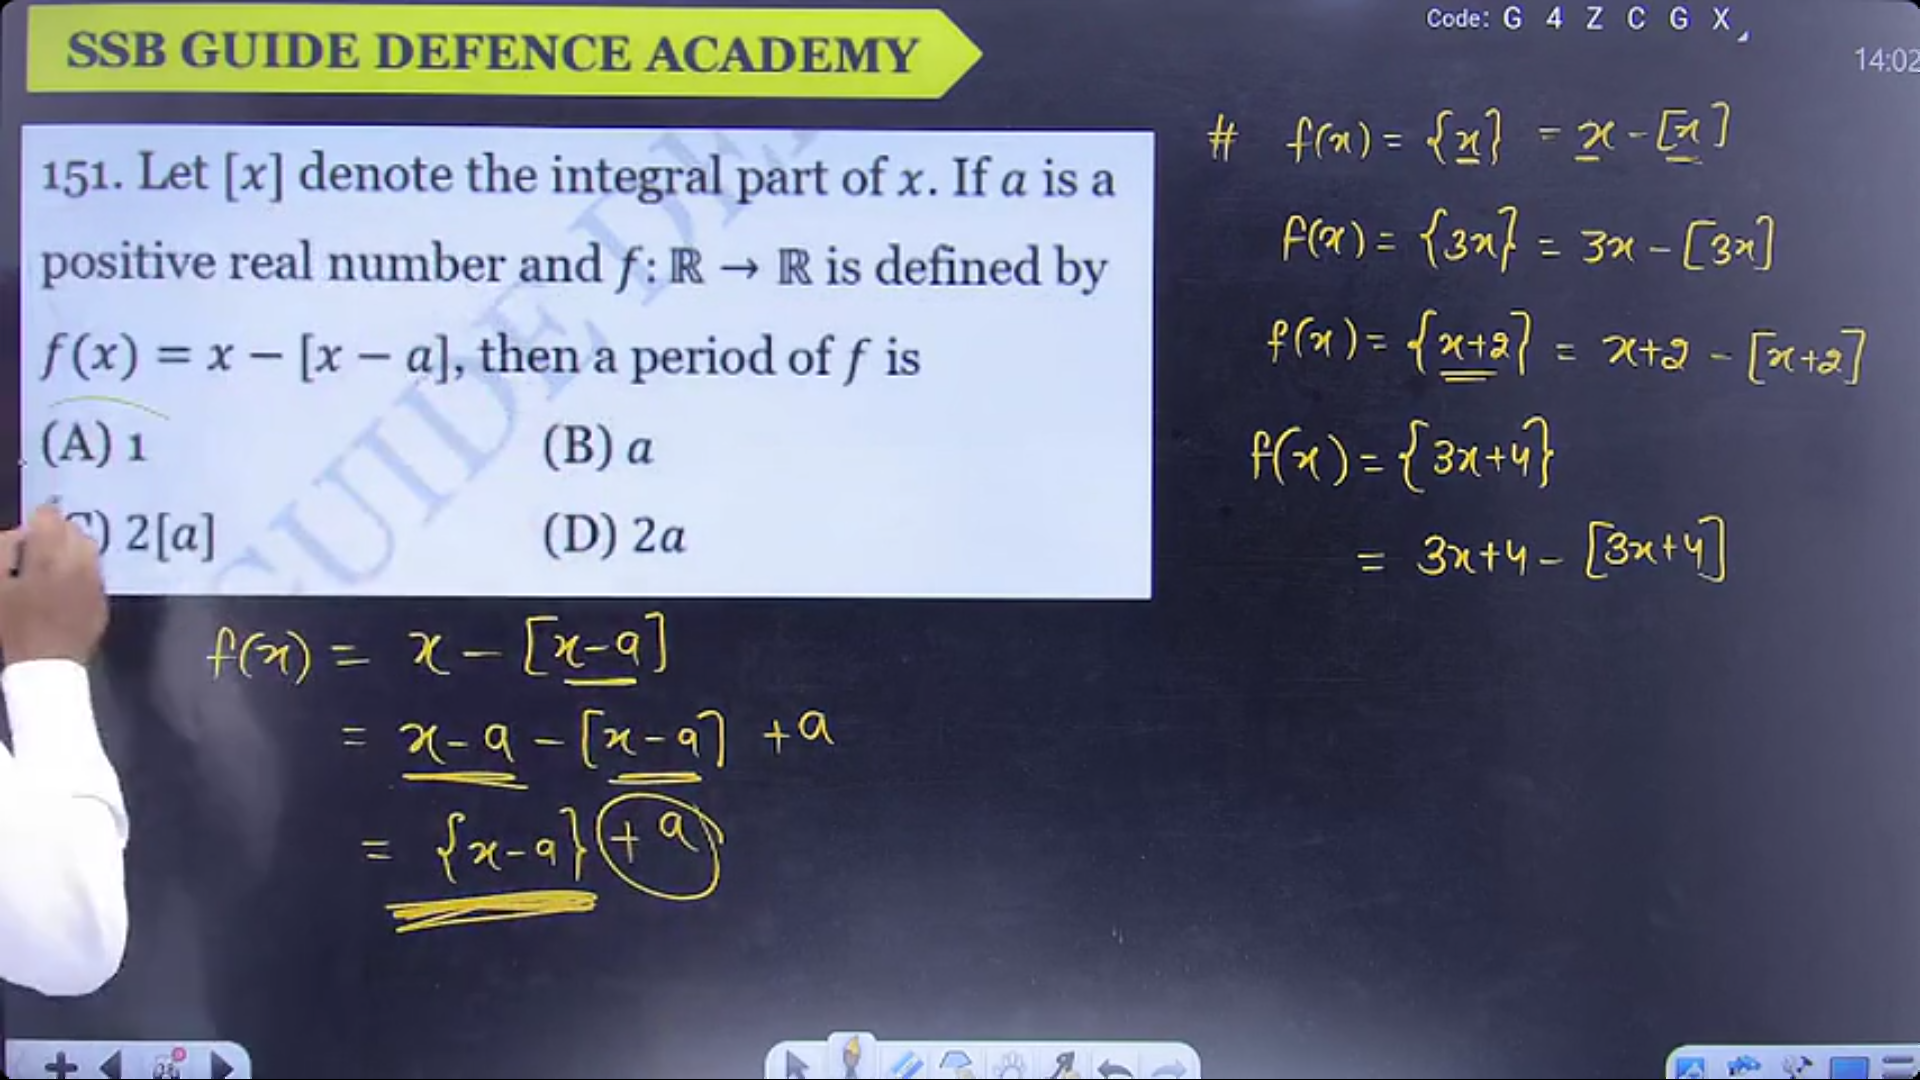 Code: G 4 Z C G X
14:02
SSB GUIDE DEFENCE ACADEMY
151. Let [x] denote the integral part of x. If a is a
positive real number and f: ℝ → ℝ is defined by
f(x) = x − [x − a], then a period of f is
(A) 1 (B) a
2[a] (D) 2a
f(x) = x − [x−a]
= x−a − [x−a] + a
= {x−a} + a
# f(x) = {x} = x − [x]
f(x) = {3x} = 3x − [3x]
f(x) = {x+2} = x+2 − [x+2]
f(x) = {3x+4}
= 3x+4 − [3x+4]